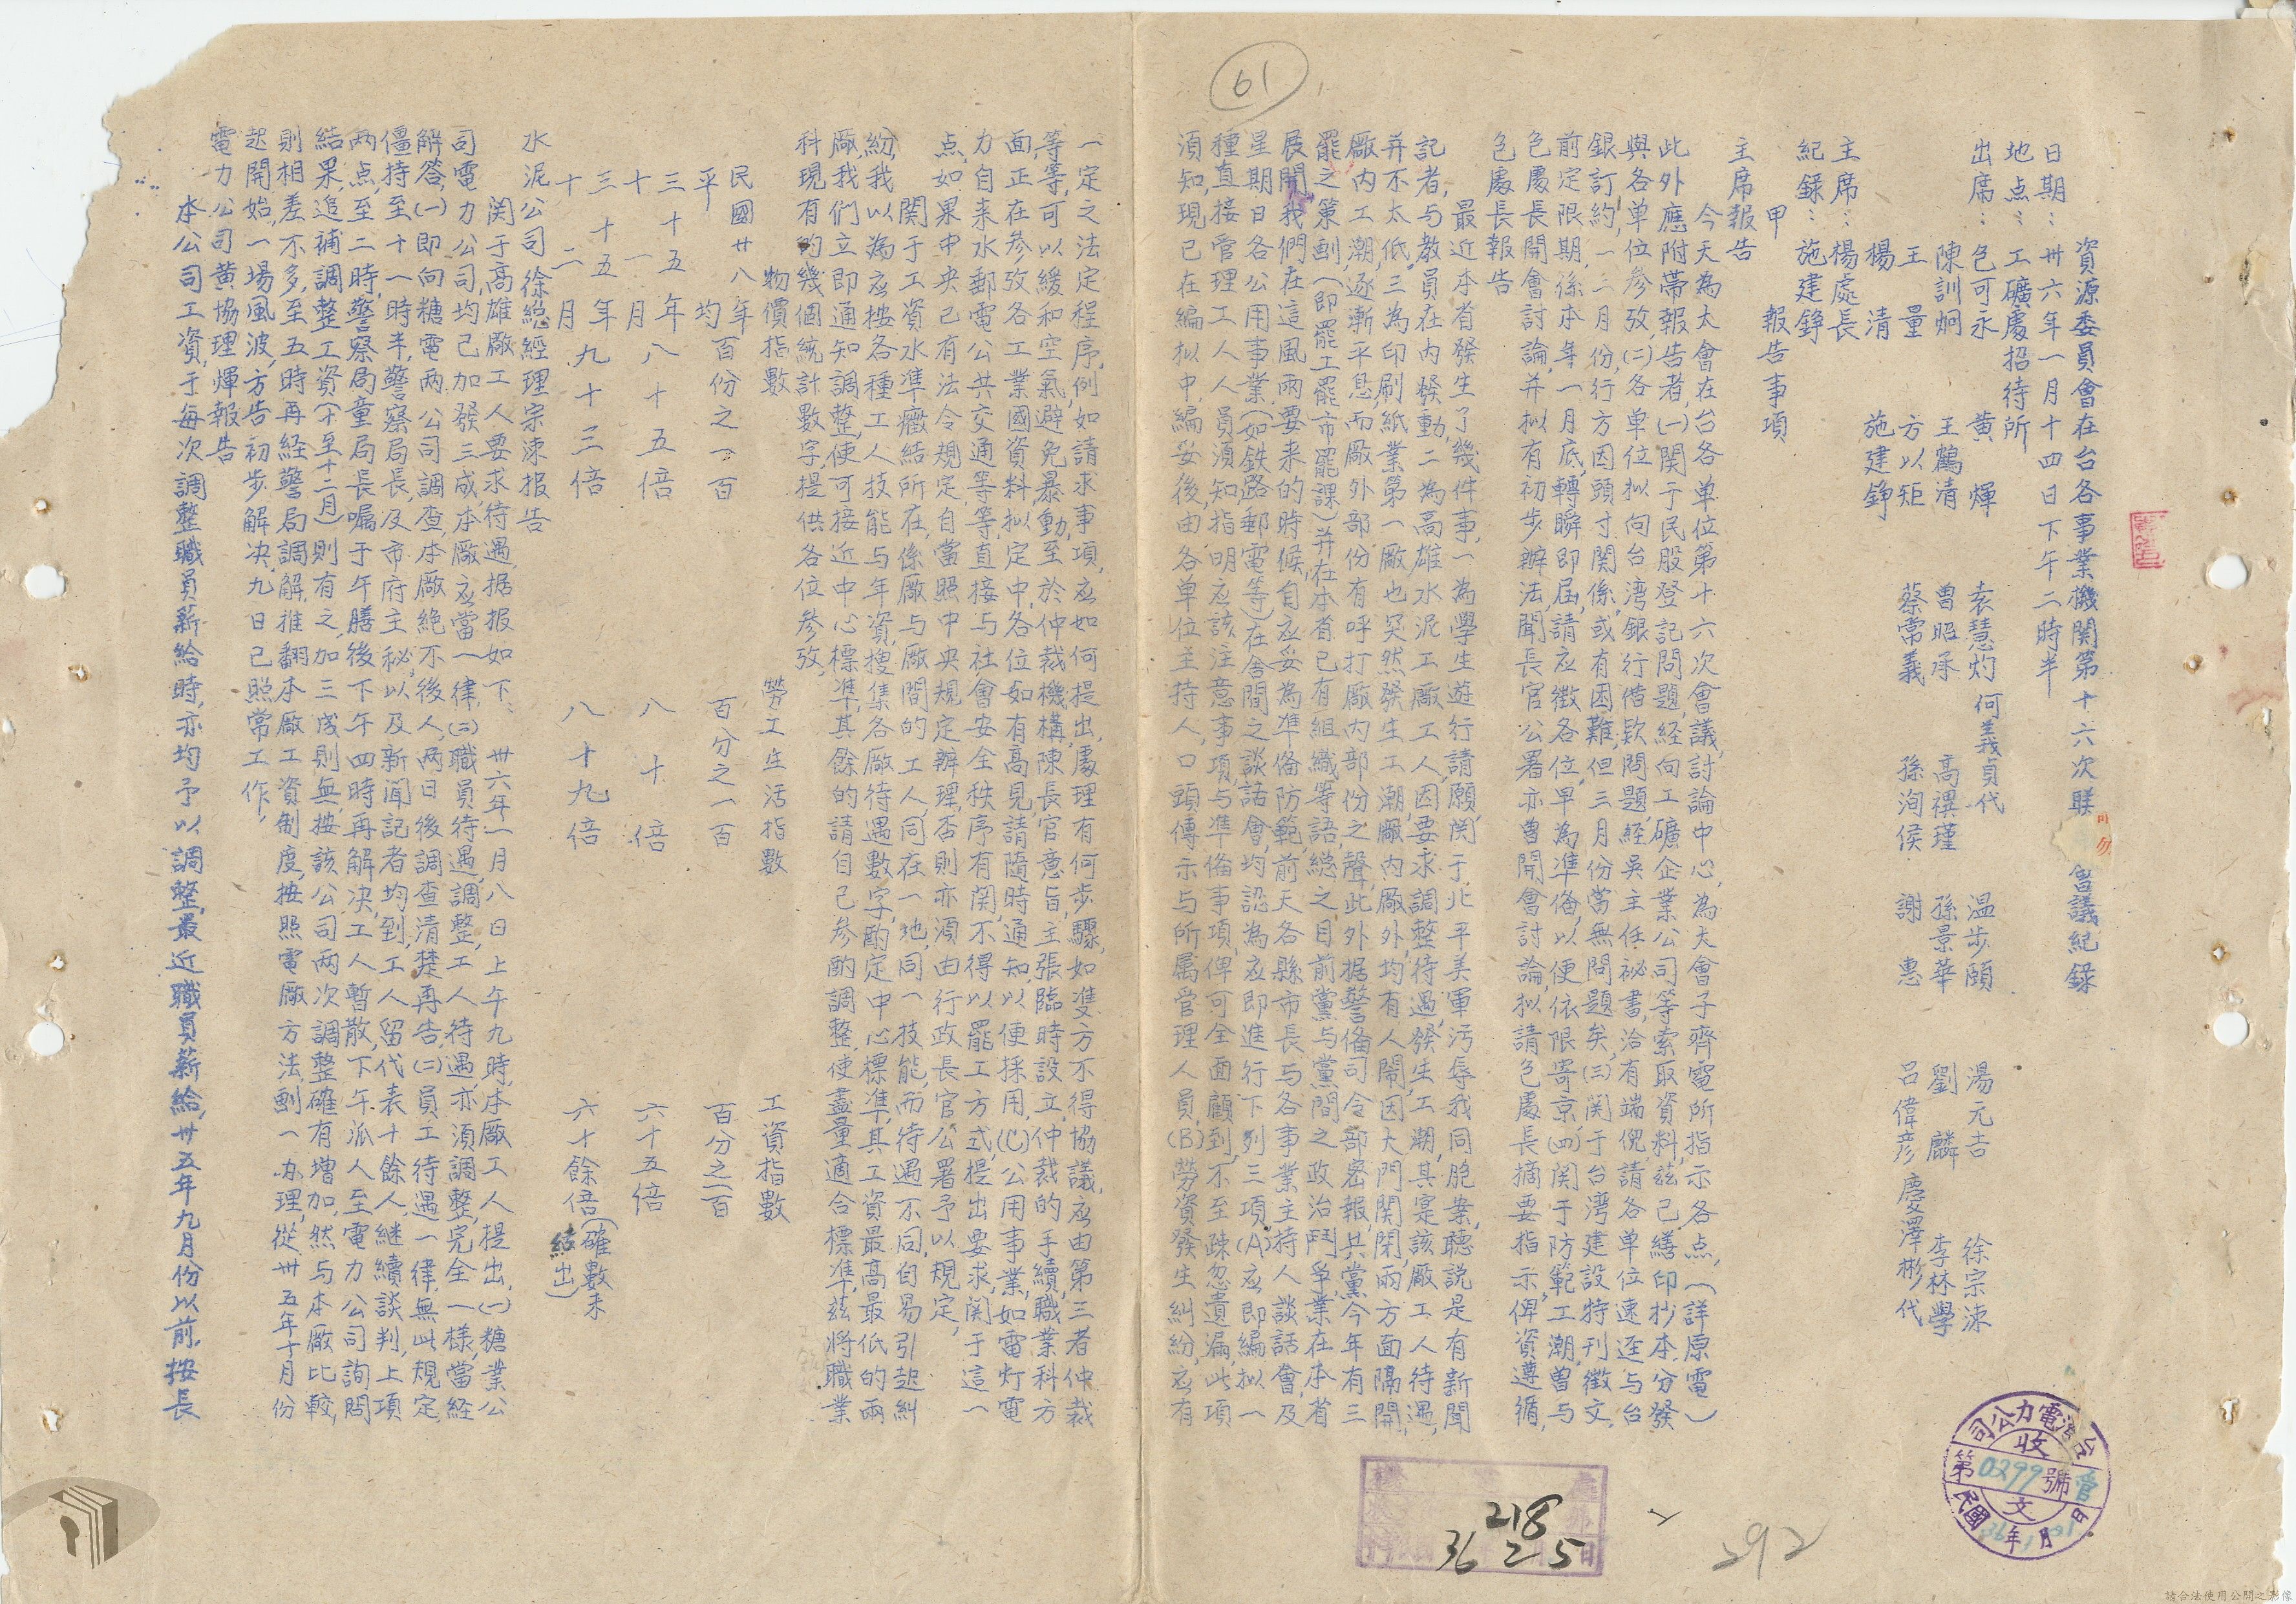 資源委員會在台各事業機関第十六次联會議紀錄
日期：卅六年一月十四日下午二時半
地点：工礦處招待所
出席：包可永 黄煇 袁慧灼 何義貞代 温步頤 湯元吉 徐宗涑
陳訓炯 王鶴清 曽昭承 高禩瑾 孫景華 劉麟 李林學
王量 方以矩 蔡常義 孫洵侯 謝惠 呂偉彦 慶澤彬代
楊清 施建錚
主席：楊處長
紀錄：施建錚
甲 報告事項
主席報告
今天為大會在台各单位第十六次會議，討論中心，為大會子齊電所指示各点，（詳原電）
此外應附帯報告者，(一)関于民股登記問題，経向工礦企業公司等索取資料，茲已繕印抄本，分發
與各单位参攷，(二)各单位拟向台湾銀行借欵問題，経吴主任祕書，洽有端倪，請各单位速逕与台
銀訂約，一二月份，行方因頭寸関係，或有困難，但三月份當無問題矣，(三)関于台湾建設特刊徵文，
前定限期，係本年一月底，轉瞬即屆，請应徵各位，早為準俻，以便依限寄京，(四)関于防範工潮，曽与
包處長開會討論，并拟有初步辦法，聞長官公署亦曽開會討論，拟請包處長摘要指示，俾資遵循，
包處長報告
最近本省發生了幾件事，一為學生遊行請願，関于北平美軍污辱我同胞案，聽説是有新聞
記者，与教員在内發動，二為高雄水泥工廠工人，因要求調整待遇，發生工潮，其寔該廠工人待遇，
并不太低，三為印刷紙業第一廠也突然發生工潮，廠内廠外，均有人鬧，因大門関閉，兩方面隔開，
廠内工潮，逐漸平息，而廠外部份有呼打廠内部份之聲，此外据警俻司令部密報，共黨今年有三
罷之策劃，（即罷工罷市罷課）并在本省已有組織等語，総之目前黨与黨間之政治鬥爭，業在本省
展開，我們在這風雨要来的時候，自应妥為準俻防範，前天各縣市長与各事業主持人談話會，及
星期日各公用事業（如鉄路郵電等）在舍間之談話會，均認為应即進行下列三項(A)应即編拟一
種直接管理工人人員須知，指明应該注意事項，与準俻事項，俾可全面顧到，不至疎忽遺漏，此項
須知，現已在編拟中，編妥後，由各单位主持人，口頭傳示与所属管理人員，(B)勞資發生糾紛，应有
61
一定之法定程序，例如請求事項，应如何提出，處理有何步驟，如雙方不得協議，应由第三者仲裁
等等，可以緩和空氣，避免暴動，至於仲裁機構，陳長官意旨，主張臨時設立，仲裁的手續，職業科方
面，正在参攷各工業國資料，拟定中，各位如有高見，請隨時通知，以便採用，(C)公用事業，如電灯電
力自来水郵電公共交通等等，直接与社會安全秩序有関，不得以罷工方式提出要求，関于這一
点，如果中央已有法令規定，自當照中央規定辦理，否則亦須由行政長官公署予以規定，
関于工資水準癥結所在，係廠与廠間的工人，同在一地，同一技能，而待遇不同，自易引起糾
紛，我以為应按各種工人技能与年資，搜集各廠待遇數字，酌定中心標準，其工資最高最低的兩
廠，我们立即通知調整，使可接近中心標準，其餘的請自己参酌調整，使盡量適合標準，茲將職業
科現有的幾個統計數字，提供各位参攷，
物價指數 勞工生活指數 工資指數
民國廿八年平均 百份之一百 百分之一百 百分之一百
三十五年十一月 八十五倍 八十倍 六十五倍
三十五年十二月 九十三倍 八十九倍 六十餘倍（確數未結出）
水泥公司徐総経理宗涑报告
関于高雄廠工人要求待遇，据报如下：卅六年一月八日上午九時，本廠工人提出，(一)糖業公
司電力公司均已加發三成，本廠应當一律，(二)職員待遇調整，工人待遇亦須調整，完全一樣，當経
解答，(一)即向糖電兩公司調查，本廠絶不後人，两日後調查清楚再告，(二)員工待遇一律，無此規定，
僵持至十一時半，警察局長，及市府主秘，以及新闻記者均到，工人留代表十餘人，継續談判，上項
两点，至二時，警察局童局長嘱于午膳後下午四時再解决，工人暫散，下午派人至電力公司詢問
結果，追補調整工資（十至十二月）則有之，加三成則無，按該公司两次調整確有增加，然与本廠比較，
則相差不多，至五時再経警局調解，推翻本廠工資制度，按照電廠方法，劃一办理，從卅五年十月份
起開始，一場風波，方告初步解决，九日已照常工作，
電力公司黄協理煇報告
本公司工資，于每次調整職員薪給時，亦均予以調整，最近職員薪給，卅五年九月份以前，按長
台灣電力公司
收
第0299號
管
文
民國36年1月21日
218
36 2 5
292
請合法使用公開之影像